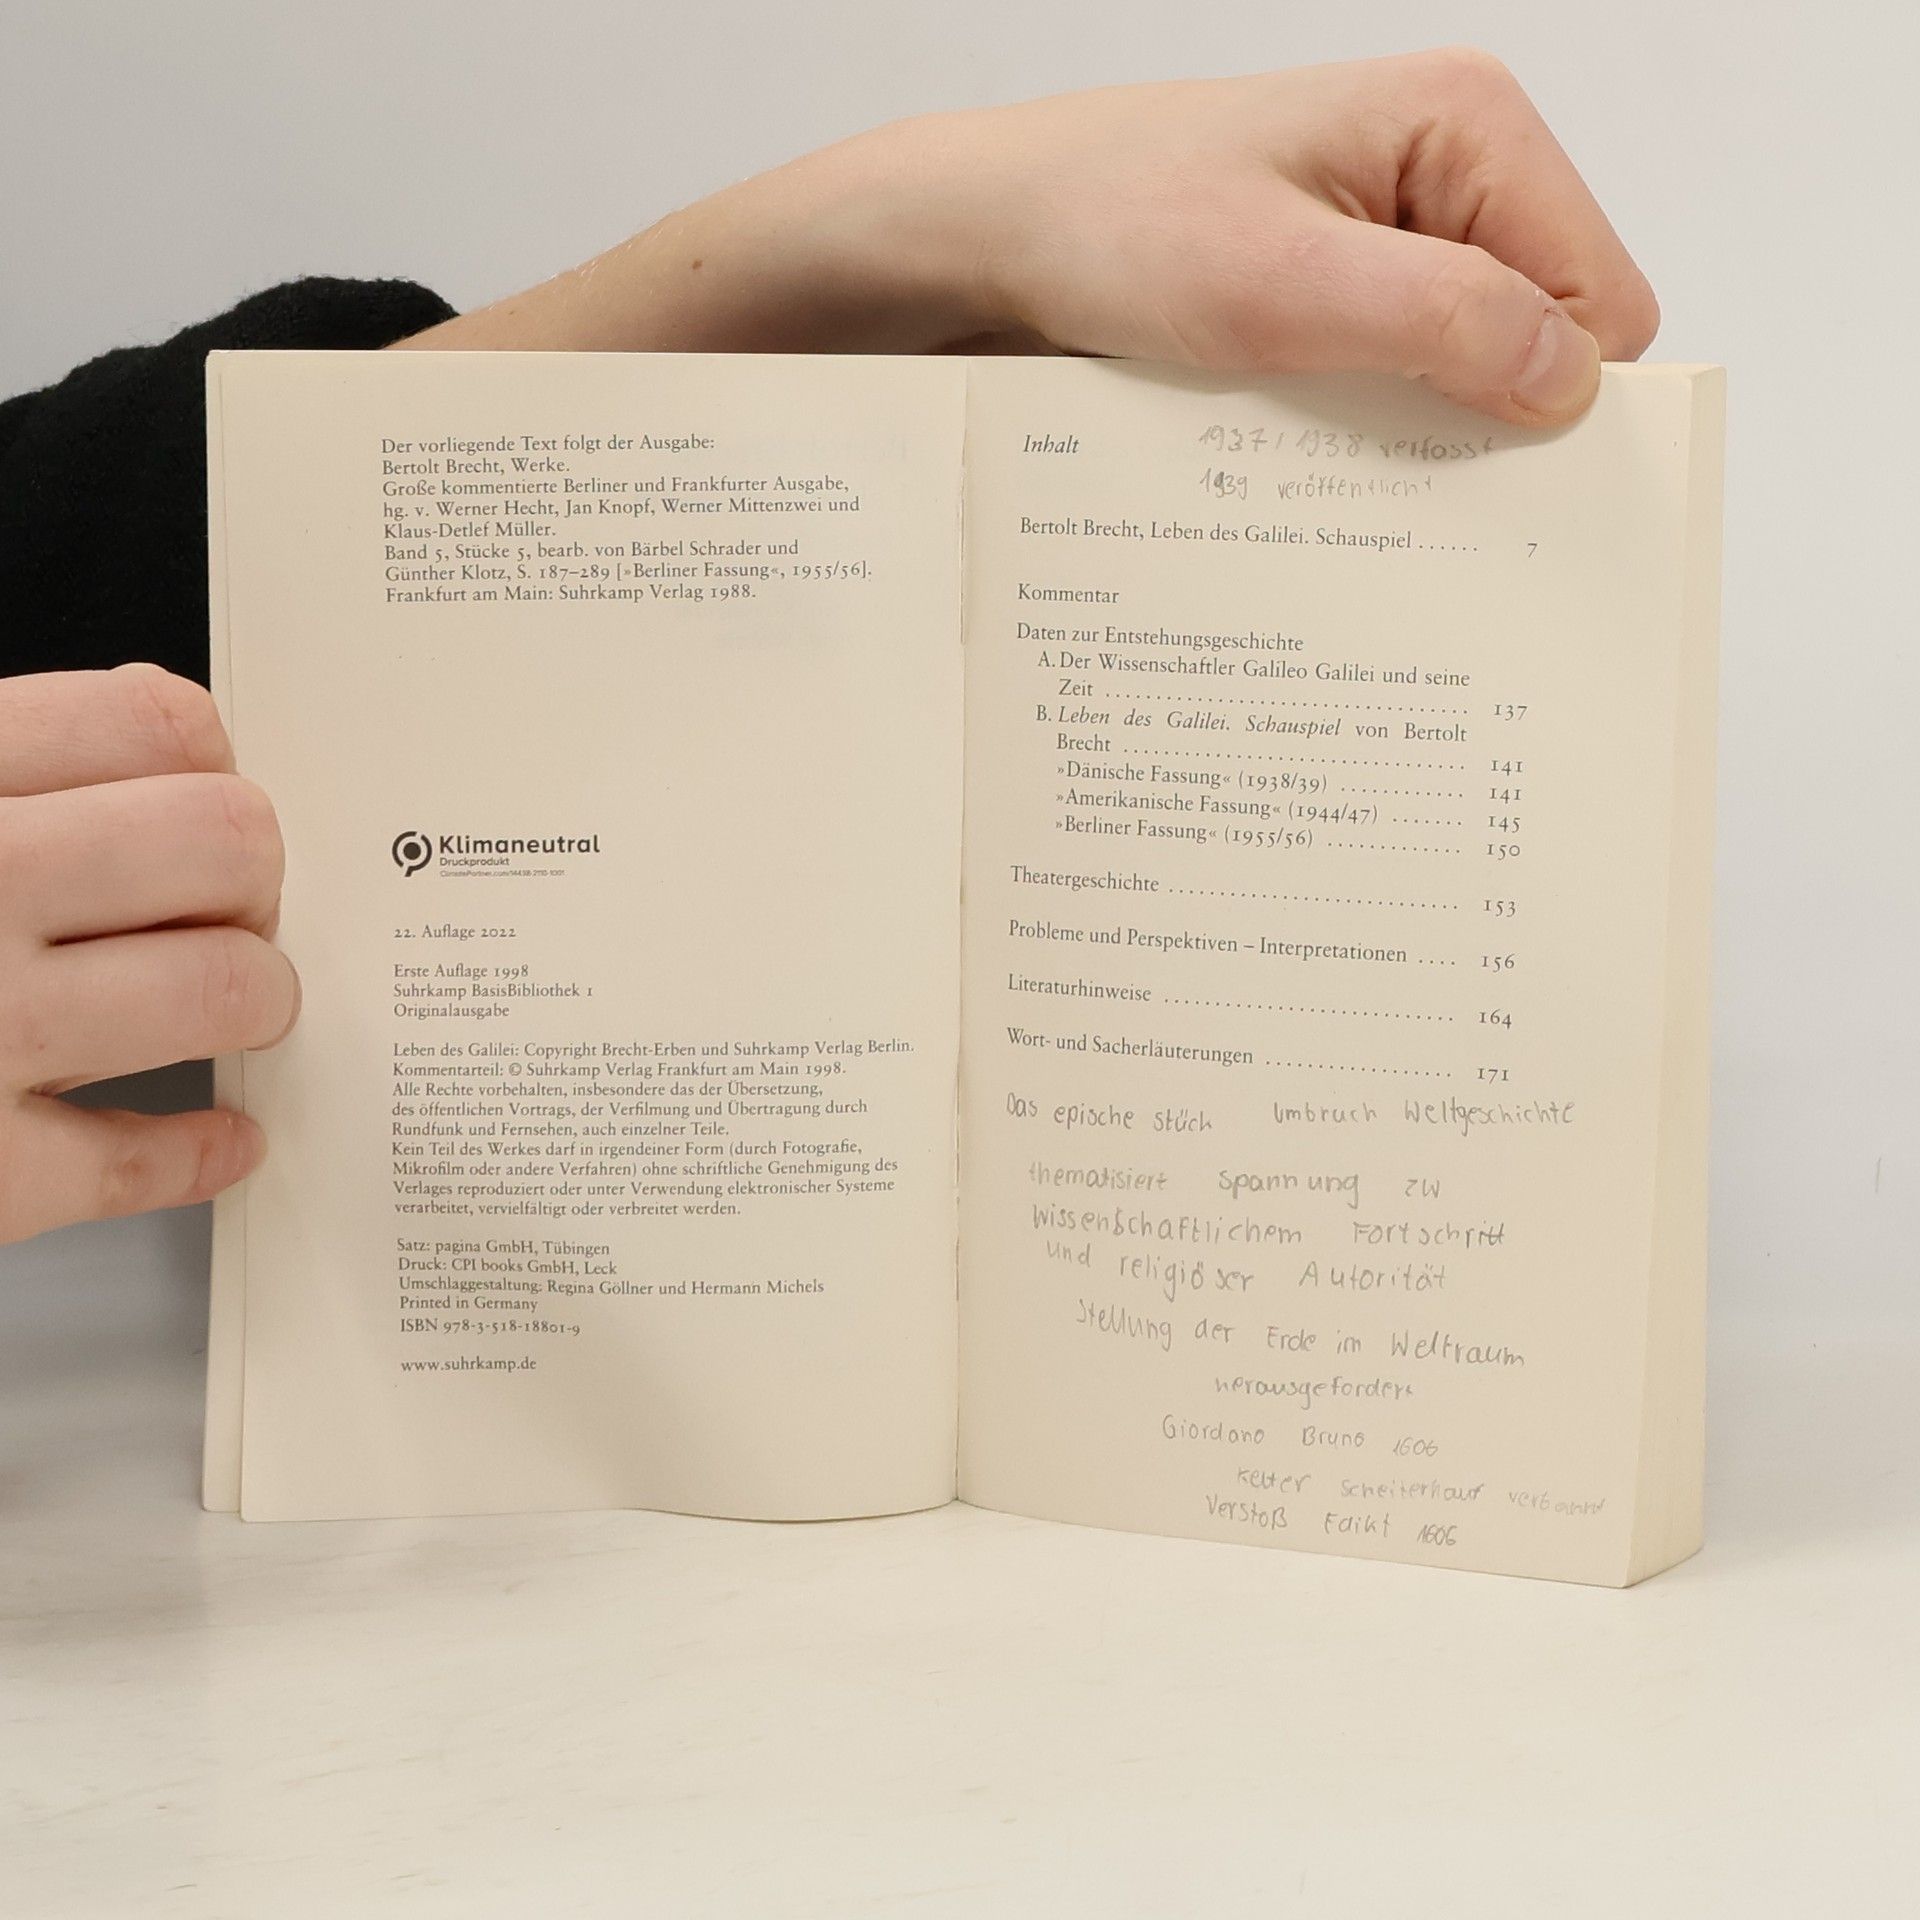 Der vorliegende Text folgt der Ausgabe:
Bertolt Brecht, Werke.
Große kommentierte Berliner und Frankfurter Ausgabe,
hg. v. Werner Hecht, Jan Knopf, Werner Mittenzwei und
Klaus-Detlef Müller.
Band 5, Stücke 5, bearb. von Bärbel Schrader und
Günther Klotz, S. 187–289 [»Berliner Fassung«, 1955/56].
Frankfurt am Main: Suhrkamp Verlag 1988.
Klimaneutral
Druckprodukt
22. Auflage 2022
Erste Auflage 1998
Suhrkamp BasisBibliothek 1
Originalausgabe
Leben des Galilei: Copyright Brecht-Erben und Suhrkamp Verlag Berlin.
Kommentarteil: © Suhrkamp Verlag Frankfurt am Main 1998.
Alle Rechte vorbehalten, insbesondere das der Übersetzung,
des öffentlichen Vortrags, der Verfilmung und Übertragung durch
Rundfunk und Fernsehen, auch einzelner Teile.
Kein Teil des Werkes darf in irgendeiner Form (durch Fotografie,
Mikrofilm oder andere Verfahren) ohne schriftliche Genehmigung des
Verlages reproduziert oder unter Verwendung elektronischer Systeme
verarbeitet, vervielfältigt oder verbreitet werden.
Satz: pagina GmbH, Tübingen
Druck: CPI books GmbH, Leck
Umschlaggestaltung: Regina Göllner und Hermann Michels
Printed in Germany
ISBN 978-3-518-18801-9
www.suhrkamp.de
Inhalt 1937/1938 verfasst
1939 veröffentlicht
Bertolt Brecht, Leben des Galilei. Schauspiel ...... 7
Kommentar
Daten zur Entstehungsgeschichte
A. Der Wissenschaftler Galileo Galilei und seine
Zeit .................................... 137
B. Leben des Galilei. Schauspiel von Bertolt
Brecht .................................. 141
»Dänische Fassung« (1938/39) ............ 141
»Amerikanische Fassung« (1944/47) ....... 145
»Berliner Fassung« (1955/56) ............. 150
Theatergeschichte ............................ 153
Probleme und Perspektiven – Interpretationen .... 156
Literaturhinweise ............................ 164
Wort- und Sacherläuterungen .................. 171
Das epische Stück Umbruch Weltgeschichte
thematisiert Spannung zw
wissenschaftlichem Fortschritt
und religiöser Autorität
Stellung der Erde im Weltraum
herausgefordert
Giordano Bruno 1606
Ketzer Scheiterhauf verbannt
Verstoß Edikt 1606